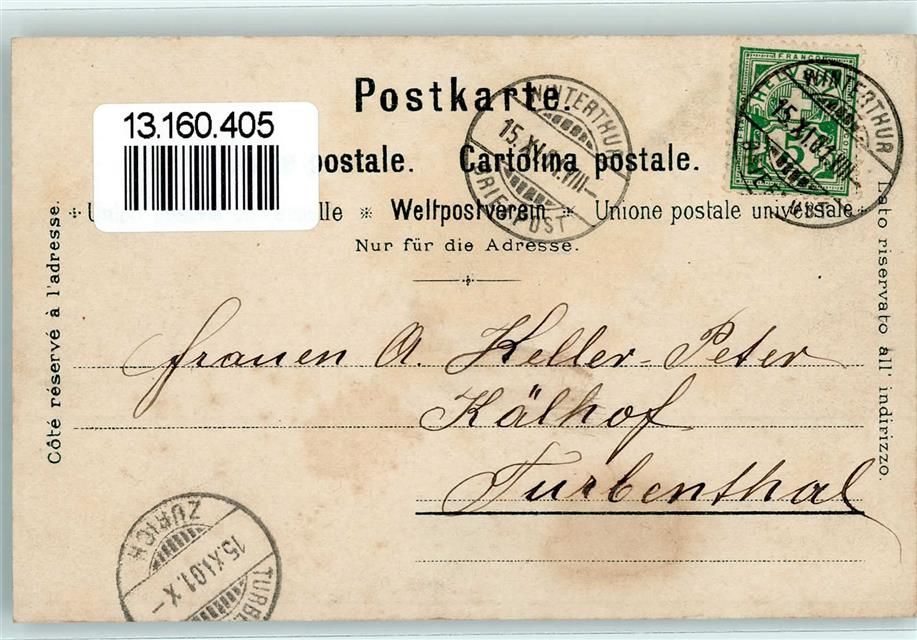 Postkarte.
13.160.405
postale. Cartolina postale.
Weltpostverein ※ Unione postale universale
Nur für die Adresse.
Côté réservé à l'adresse.
Lato riservato all indirizzo.
FRANCO
HELV
5
WINTERTHUR
15.XI.01.VIII-
BRIEFPOST
WINTERTHUR
15.XI.01.VIII-
Frauen A. Keller-Peter
Kälhof
Turbenthal
ZÜRICH
15.XI.01.X-
TURBE